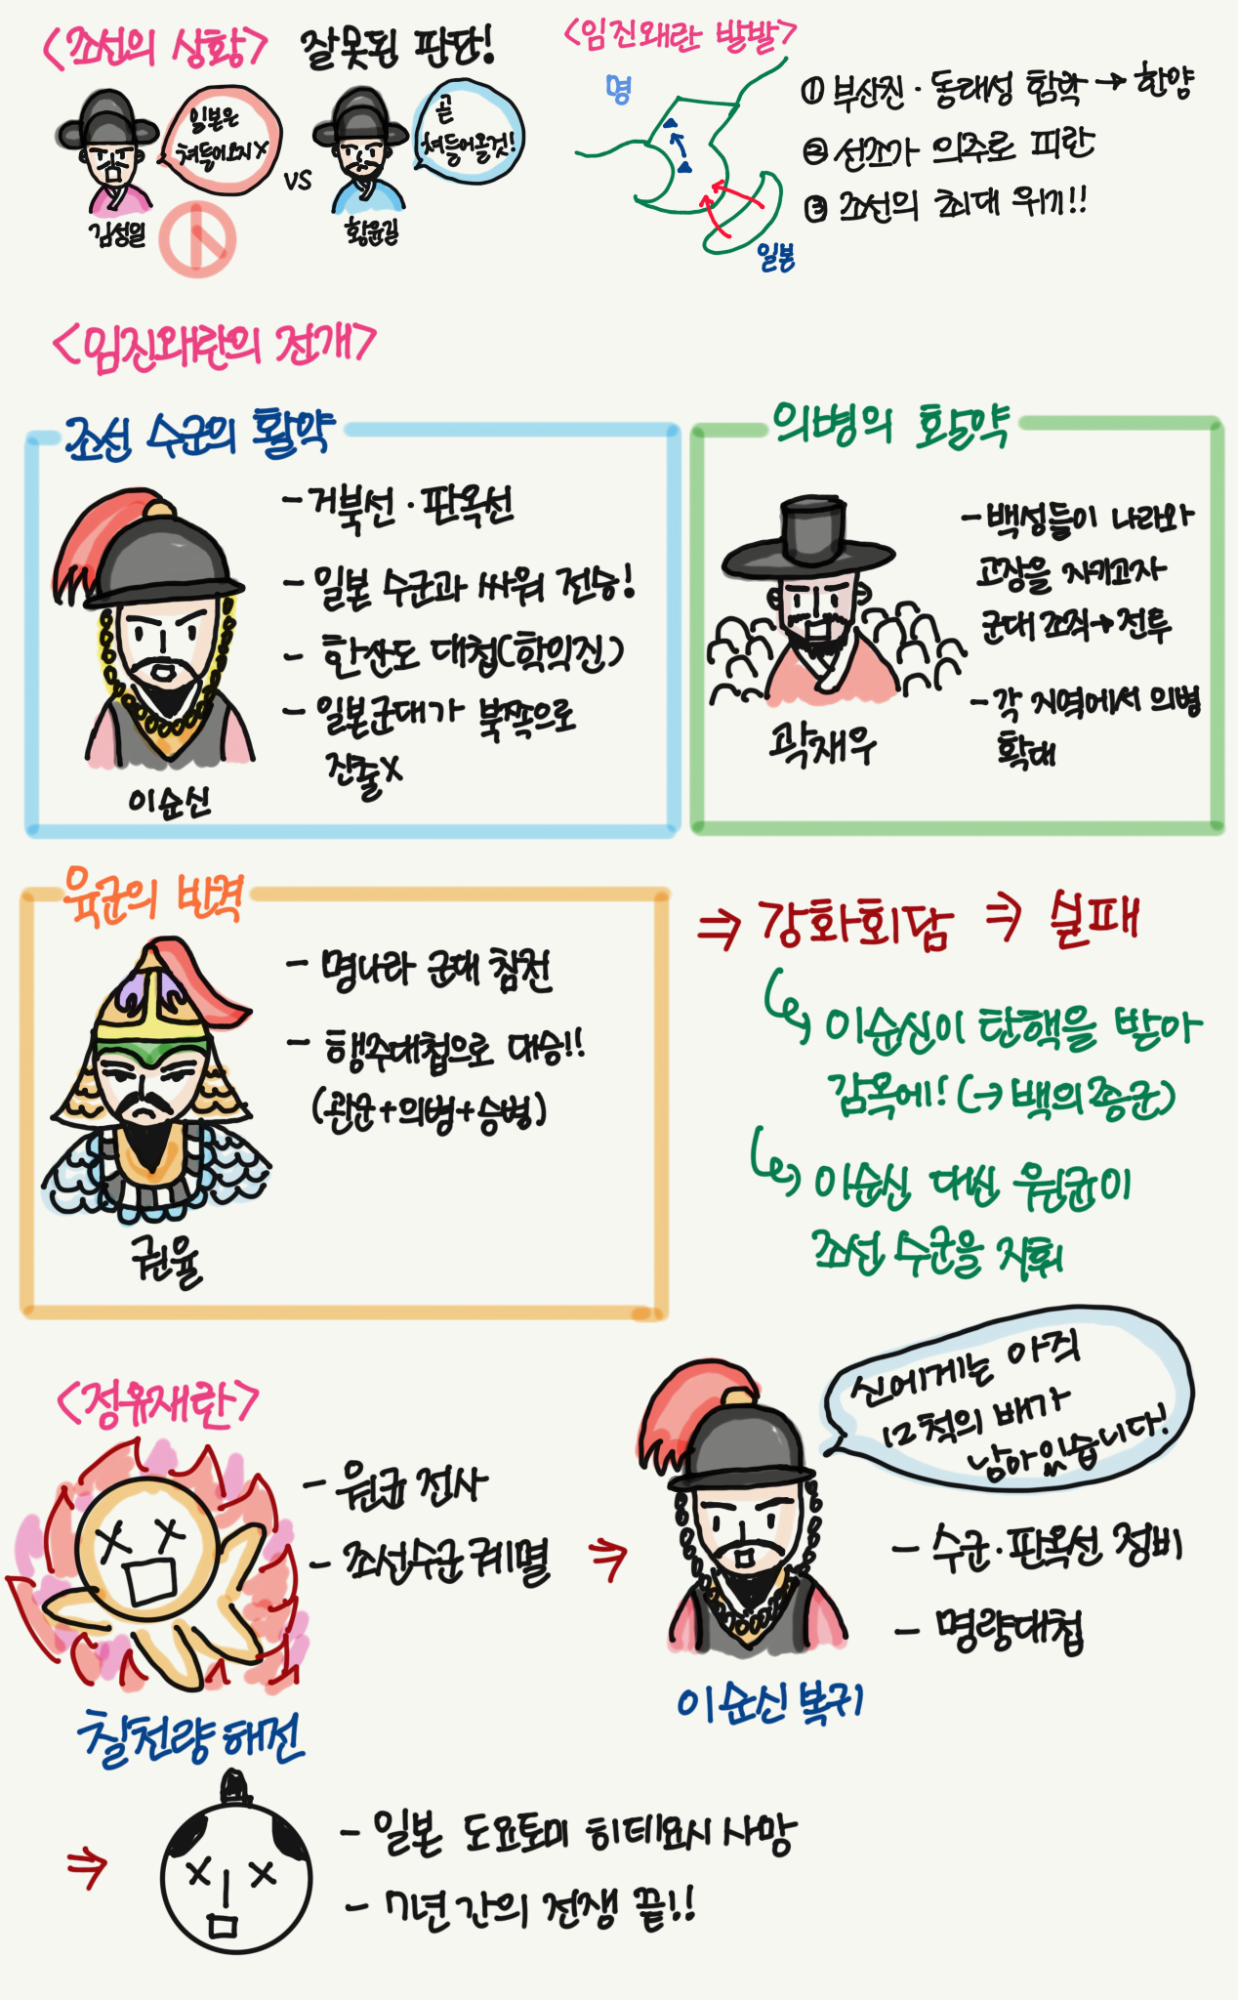 <조선의 상황> 잘못된 판단!
일본은
쳐들어오지 X
김성일
vs
곧
쳐들어올것!
황윤길
<임진왜란 발발>
명
일본
① 부산진 · 동래성 함락 → 한양
② 선조가 의주로 피란
③ 조선의 최대 위기!!
<임진왜란의 전개>
조선 수군의 활약
- 거북선 · 판옥선
- 일본 수군과 싸워 전승!
- 한산도 대첩(학익진)
- 일본군대가 북쪽으로
진출 X
이순신
의병의 활약
- 백성들이 나라와
고장을 지키고자
군대 조직 → 전투
- 각 지역에서 의병
확대
곽재우
육군의 반격
- 명나라 군대 참전
- 행주대첩으로 대승!!
(관군+의병+승병)
권율
⇒ 강화회담 ⇒ 실패
이순신이 탄핵을 받아
감옥에! (→ 백의종군)
이순신 대신 원균이
조선 수군을 지휘
<정유재란>
- 원균 전사
- 조선수군 궤멸
칠천량 해전
⇒
신에게는 아직
12척의 배가
남아있습니다!
- 수군 · 판옥선 정비
- 명량대첩
이순신 복귀
⇒
- 일본 도요토미 히데요시 사망
- 7년 간의 전쟁 끝!!